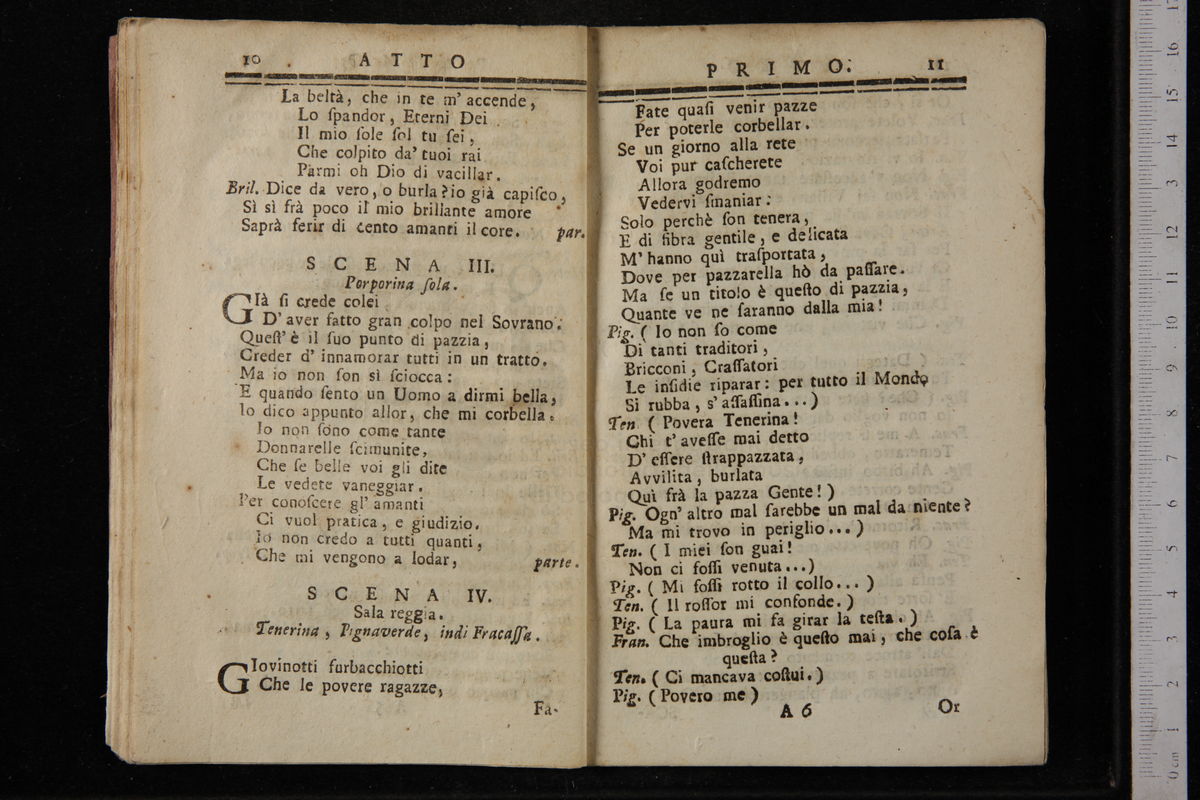 10 . ATTO
La beltà, che in te m' accende,
Lo ſpandor, Eterni Dei
Il mio ſole ſol tu ſei,
Che colpito da' tuoi rai
Parmi oh Dio di vacillar.
Bril. Dice da vero, o burla? io già capiſco,
Sì sì frà poco il mio brillante amore
Saprà ferir di cento amanti il core. par.
SCENA III.
Porporina ſola.
GIà ſi crede colei
D' aver fatto gran colpo nel Sovrano.
Queſt' è il ſuo punto di pazzia,
Creder d' innamorar tutti in un tratto.
Ma io non ſon sì ſciocca:
E quando ſento un Uomo a dirmi bella,
Io dico appunto allor, che mi corbella.
Io non ſono come tante
Donnarelle ſcimunite,
Che ſe belle voi gli dite
Le vedete vaneggiar.
Per conoſcere gl' amanti
Ci vuol pratica, e giudizio.
Io non credo a tutti quanti,
Che mi vengono a lodar, parte.
SCENA IV.
Sala reggia.
Tenerina, Pignaverde, indi Fracaſſa.
GIovinotti furbacchiotti
Che le povere ragazze,
Fa-
PRIMO. 11
Fate quaſi venir pazze
Per poterle corbellar.
Se un giorno alla rete
Voi pur caſcherete
Allora godremo
Vedervi ſmaniar:
Solo perchè ſon tenera,
E di fibra gentile, e delicata
M' hanno quì traſportata,
Dove per pazzarella hò da paſſare.
Ma ſe un titolo è queſto di pazzia,
Quante ve ne ſaranno dalla mia!
Pig. ( Io non ſo come
Di tanti traditori,
Bricconi, Craſſatori
Le inſidie riparar: per tutto il Mondo
Si rubba, s' aſſaſſina...)
Ten ( Povera Tenerina!
Chi t' aveſſe mai detto
D' eſſere ſtrappazzata,
Avvilita, burlata
Quì frà la pazza Gente! )
Pig. Ogn' altro mal ſarebbe un mal da niente?
Ma mi trovo in periglio... )
Ten. ( I miei ſon guai!
Non ci foſſi venuta...)
Pig. ( Mi foſſi rotto il collo... )
Ten. ( Il roſſor mi confonde. )
Pig. ( La paura mi fa girar la teſta. )
Fran. Che imbroglio è queſto mai, che coſa è
queſta?
Ten. ( Ci mancava coſtui. )
Pig. ( Povero me )
A 6 Or